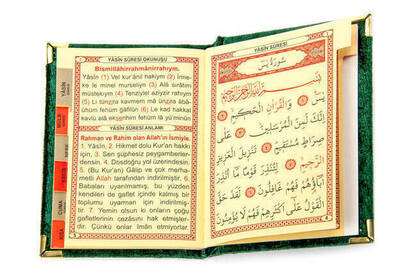 YÂSÎN SÛRESİ OKUNUŞU
Bismillâhirrahmânirrahıym.
Yâsîn (1) Vel kur'ânil hakiym (2) İnne-
ke le minel murseliyn (3) Alâ sırâtım
müstekıym (4) Tenziylel aziyzir rahıym
(5) Li tünzıra kavmem mâ ünzıra âbâ-
ühüm fehüm ğâfilûn (6) Le kad hakkal
kavlü alâ ekserihim fehüm lâ yü'minûn
YÂSÎN SÛRESİ ANLAMI
Rahman ve Rahim olan Allah'ın İsmiyle.
1. Yâsîn. 2. Hikmet dolu Kur'an hakkı
için, 3. Sen şüphesiz peygamberler-
densin. 4. Dosdoğru yol üzerindesin.
5. (Bu Kur'an) Gâlip ve çok marha-
metli Allah tarafından indirilmiştir. 6.
Babaları uyarılmamış, bu yüzden
kendileri de gaflet içinde kalmış bir
toplumu uyarman için indirilmiş-
tir. 7. Yemin olsun ki onların çoğu
gafletlerinin cezasını hak etmişler-
dir. Çünkü onlar îman etmiyorlar.
YÂSÎN
CUMA
YÂSÎN SÛRESİ
سُورَةُ يٰسٓ
بِسْمِ اللّٰهِ الرَّحْمٰنِ الرَّحِيمِ
يٰسٓ ﴿١﴾ وَالْقُرْاٰنِ الْحَكِيمِ ﴿٢﴾
اِنَّكَ لَمِنَ الْمُرْسَلِينَ ﴿٣﴾ عَلٰى
صِرَاطٍ مُسْتَقِيمٍ ﴿٤﴾ تَنْزِيلَ الْعَزِيزِ
الرَّحِيمِ ﴿٥﴾ لِتُنْذِرَ قَوْمًا مَٓا اُنْذِرَ
اٰبَٓاؤُهُمْ فَهُمْ غَافِلُونَ ﴿٦﴾ لَقَدْ حَقَّ
الْقَوْلُ عَلٰٓى اَكْثَرِهِمْ فَهُمْ لَا يُؤْمِنُونَ